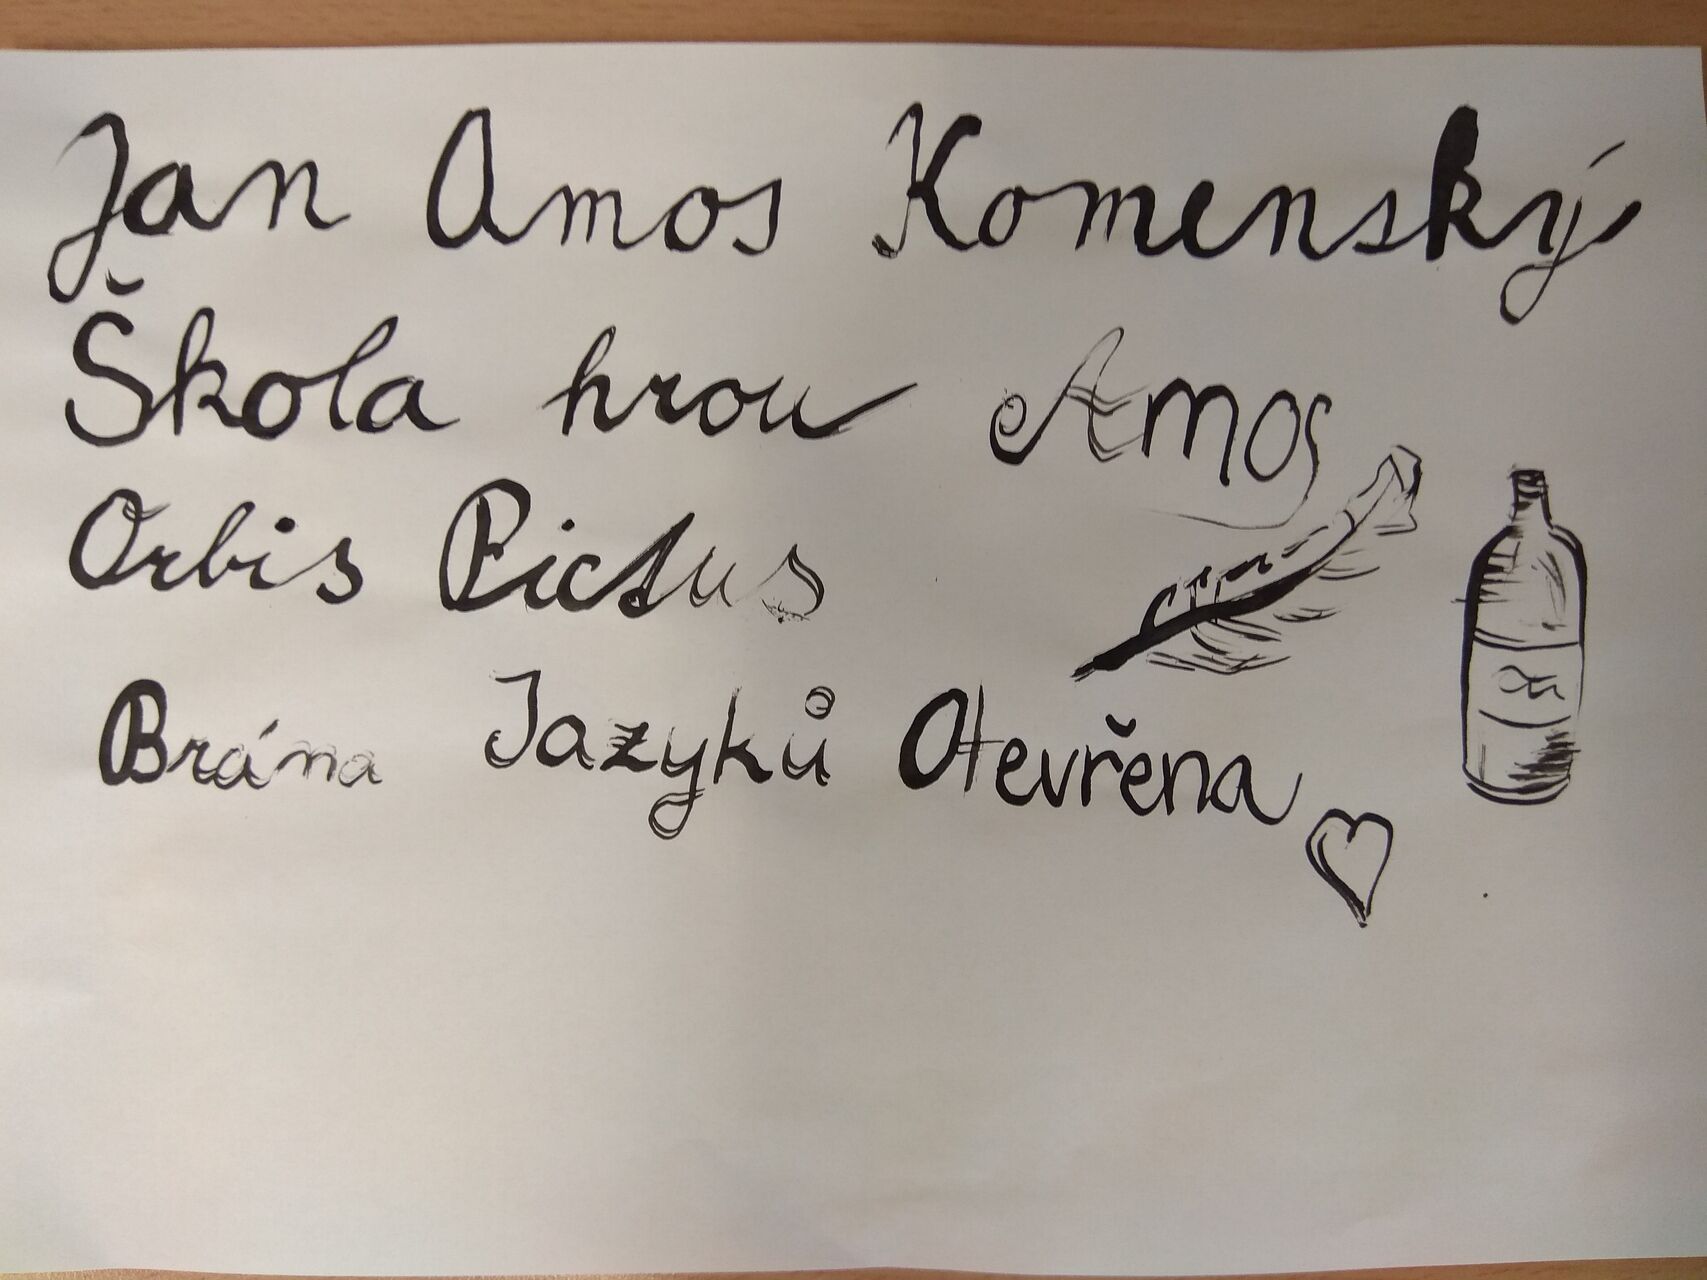 Jan Amos Komenský
Škola hrou Amos
Orbis Pictus
Brána Jazyků Otevřena